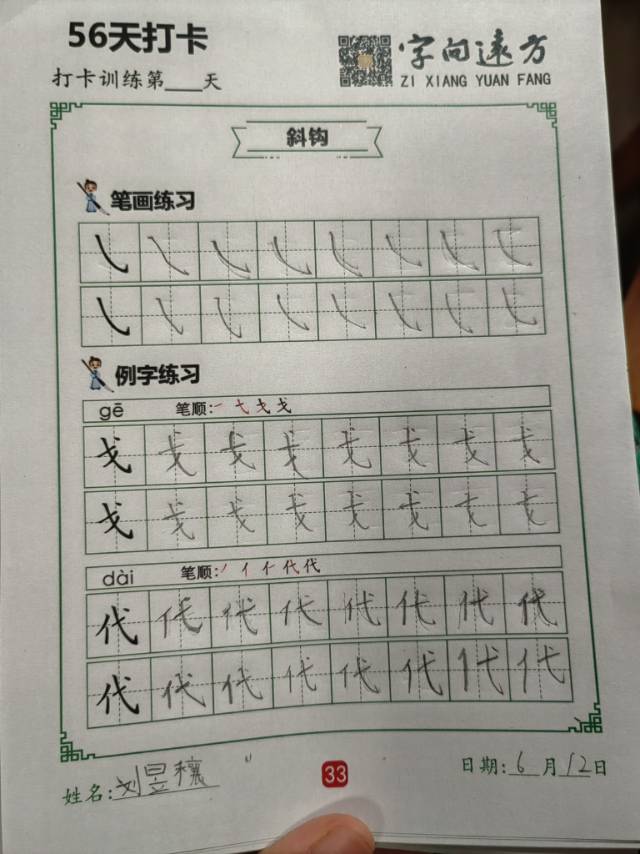 56天打卡
打卡训练第___天
字向远方
ZI XIANG YUAN FANG
斜钩
笔画练习
例字练习
gē 笔顺: 一 弋 戈 戈
戈 戈 戈 戈 戈 戈 戈 戈
戈 戈 戈 戈 戈 戈 戈 戈
dài 笔顺: 丿 亻 仁 代 代
代 代 代 代 代 代 代 代
代 代 代 代 代 代 代 代
姓名: 刘昱穰
33
日期: 6 月 12 日